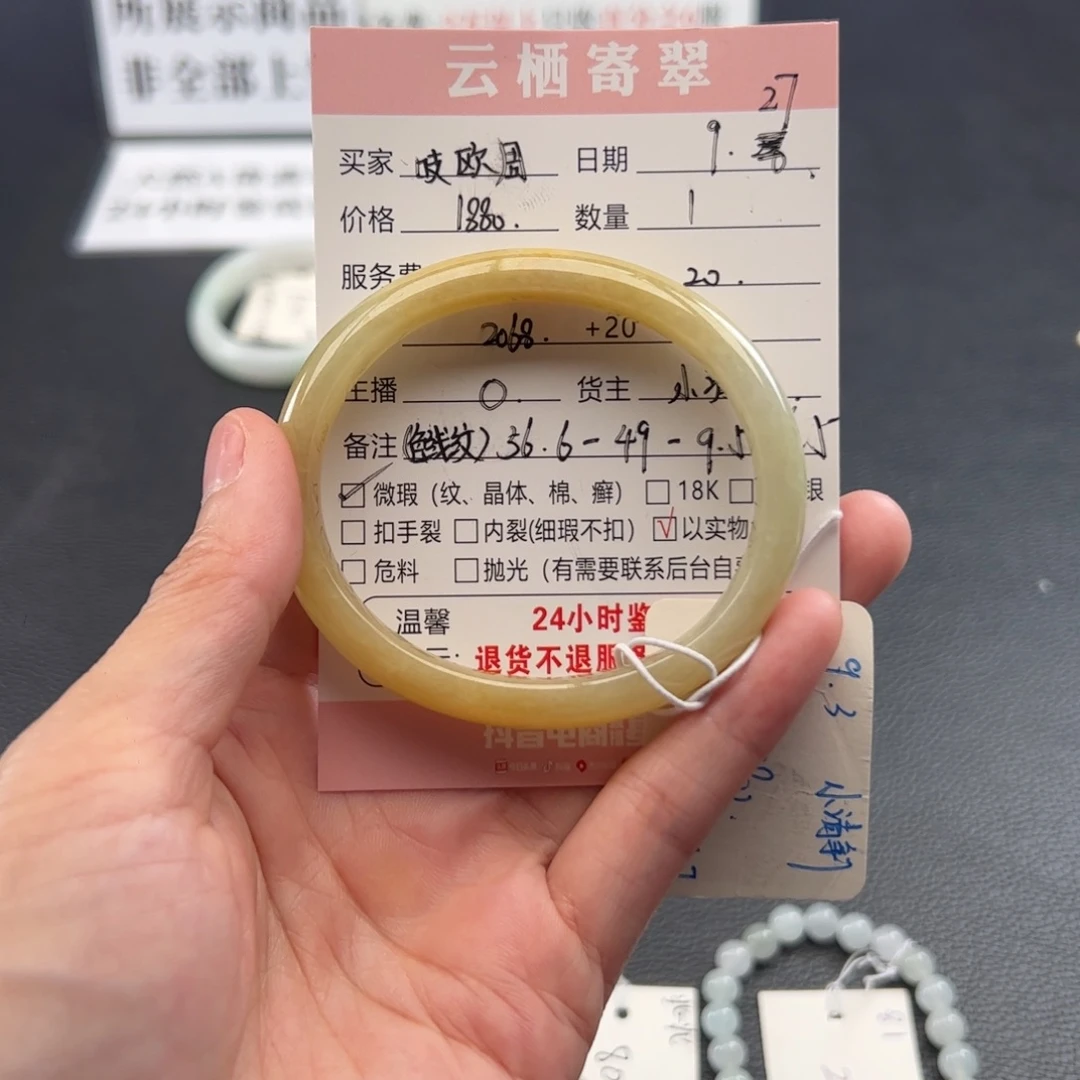 所展示商品
非全部上
24小时
云栖寄翠
买家 吱欧周 日期 9. 27
价格 1880. 数量 1
服务费 20.
2068. +20
主播 0. 货主 小
备注 (色线纹) 56.6-49-9.5
微瑕（纹、晶体、棉、癣） 18K 银
扣手裂 内裂(细瑕不扣） √ 以实物
危料 抛光（有需要联系后台自
温馨 24小时鉴
退货不退服
抖音电商
9.3
小清新
18
80